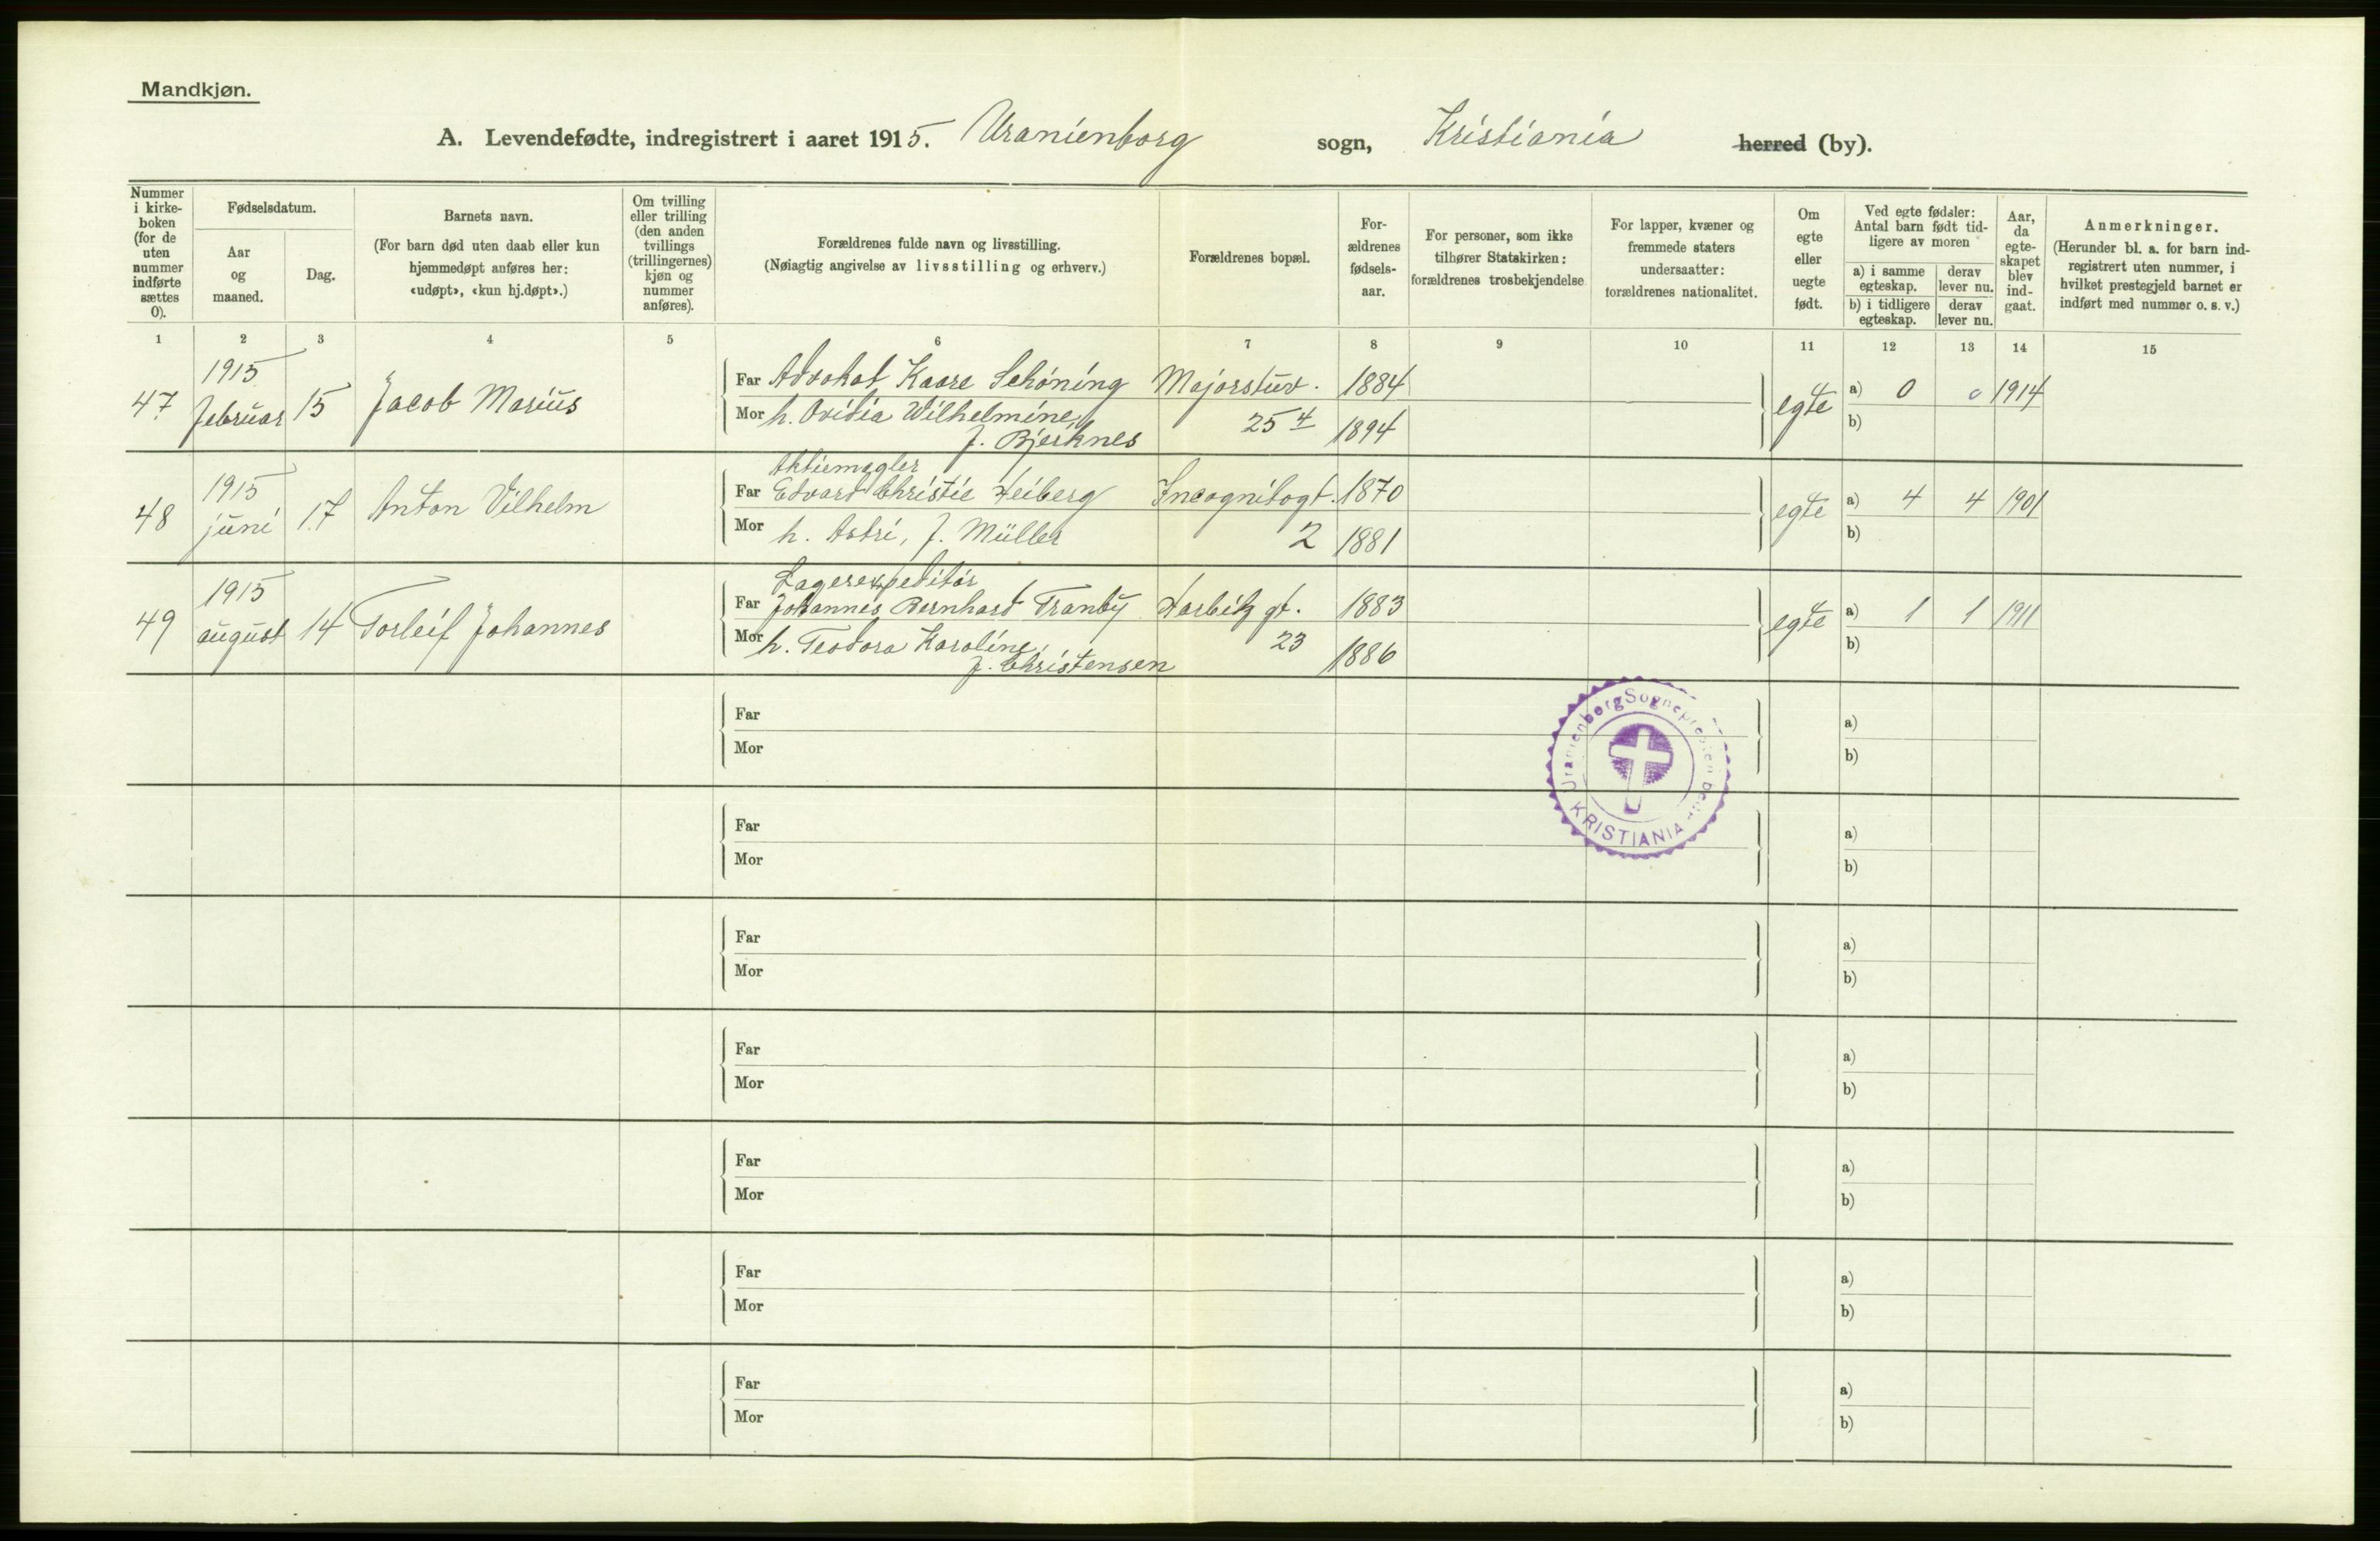 Mandkjøn.
A. Levendefødte, indregistrert i aaret 1915. Uranienborg sogn, Kristiania herred (by).
Nummer i kirke- boken (for de uten nummer indførte sættes 0).
Fødselsdatum.
Aar og maaned.
Dag.
Barnets navn.
(For barn død uten daab eller kun hjemmedøpt anføres her: «udøpt», «kun hj.døpt».)
Om tvilling eller trilling (den anden tvillings (trillingernes) kjøn og nummer anføres).
Forældrenes fulde navn og livsstilling.
(Nøiagtig angivelse av livsstilling og erhverv.)
Forældrenes bopæl.
For- ældrenes fødsels- aar.
For personer, som ikke tilhører Statskirken: forældrenes trosbekjendelse
For lapper, kvæner og fremmede staters undersaatter: forældrenes nationalitet.
Om egte eller uegte født.
Ved egte fødsler: Antal barn født tid- ligere av moren
a) i samme egteskap.
derav lever nu.
b) i tidligere egteskap.
derav lever nu.
Aar, da egte- skapet blev ind- gaat.
Anmerkninger.
(Herunder bl. a. for barn ind- registrert uten nummer, i hvilket prestegjeld barnet er indført med nummer o. s. v.)
1 2 3 4 5 6 7 8 9 10 11 12 13 14 15
47 1915 februar 15 Jacob Marius
Far Advokat Kaare Schöning Majorstuv. 1884
Mor h. Ovidia Wilhelmine, f. Bjerknes 25 4 1894
egte a) 0 0 1914
b)
48 1915 juni 17 Anton Vilhelm
Aktiemægler
Far Edvard Christie Heiberg Incognitogt. 1870
Mor h. Astri, f. Müller 2 1881
egte a) 4 4 1901
b)
49 1915 august 14 Torleif Johannes
Lagerexpeditör
Far Johannes Bernhard Tranby Harbitz gt. 1883
Mor h. Teodora Karoline, f. Christensen 23 1886
egte a) 1 1 1911
b)
Far a)
Mor b)
Uranienborg Sogneprestembede
KRISTIANIA
Far a)
Mor b)
Far a)
Mor b)
Far a)
Mor b)
Far a)
Mor b)
Far a)
Mor b)
Far a)
Mor b)